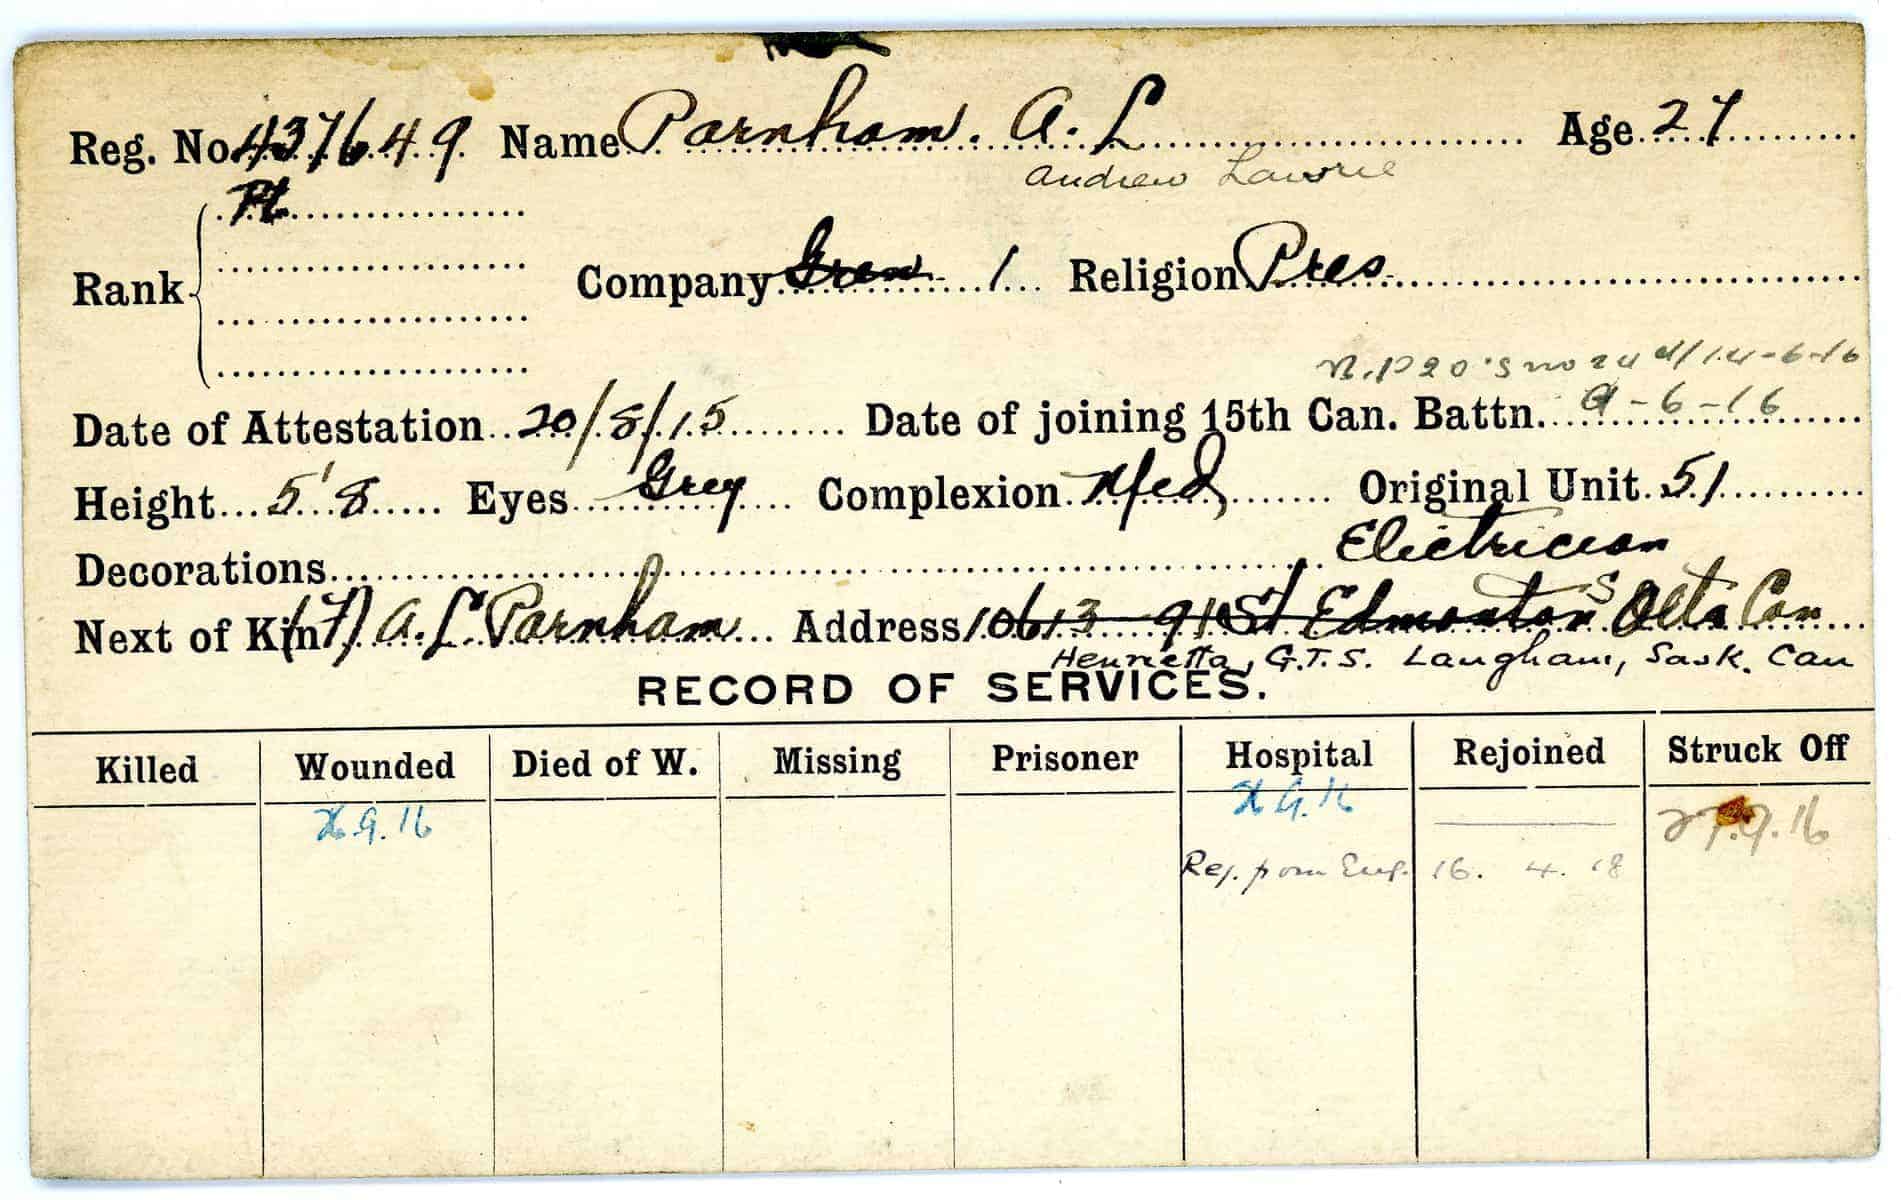 Reg. No. 437649 Name Parnham. A. L Age 27
Andrew Lawrie
Rank Pt
Company Gren 1 Religion Pres
14-6-16
Date of Attestation 20/8/15 Date of joining 15th Can. Battn. 9-6-16
Height 5'8 Eyes Grey Complexion Med Original Unit 51
Decorations Electrician
Next of Kin (F) A. L. Parnham Address 10613 - 91 St Edmonton S Alta Can
Henrietta, G.T.S. Langham, Sask. Can
RECORD OF SERVICES.
Killed Wounded Died of W. Missing Prisoner Hospital Rejoined Struck Off
26.9.16 26.9.16 27.9.16
Rej. from Eng. 16. 4. 18